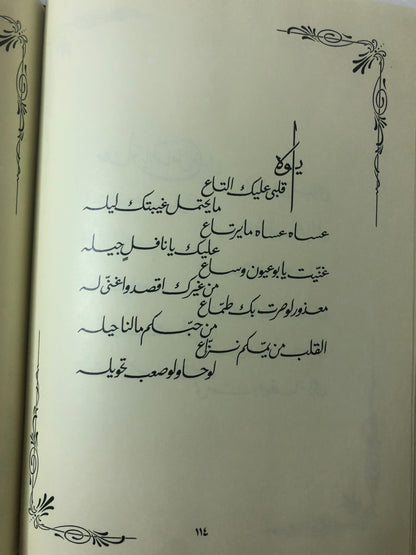 يوه
قلبي عليك التاع
ما يحتمل غيبتك ليله
عساه عساه ما يرتاع
عليك يا نافلٍ جيله
غنّيت يا بو عيون وساع
من غيرك اقصد واغنّي له
معذور لو صرت بك طمّاع
من حبّكم مالنا حيله
القلب من يمّكم نزّاع
لو حاولوا صعب تحويله
١١٤